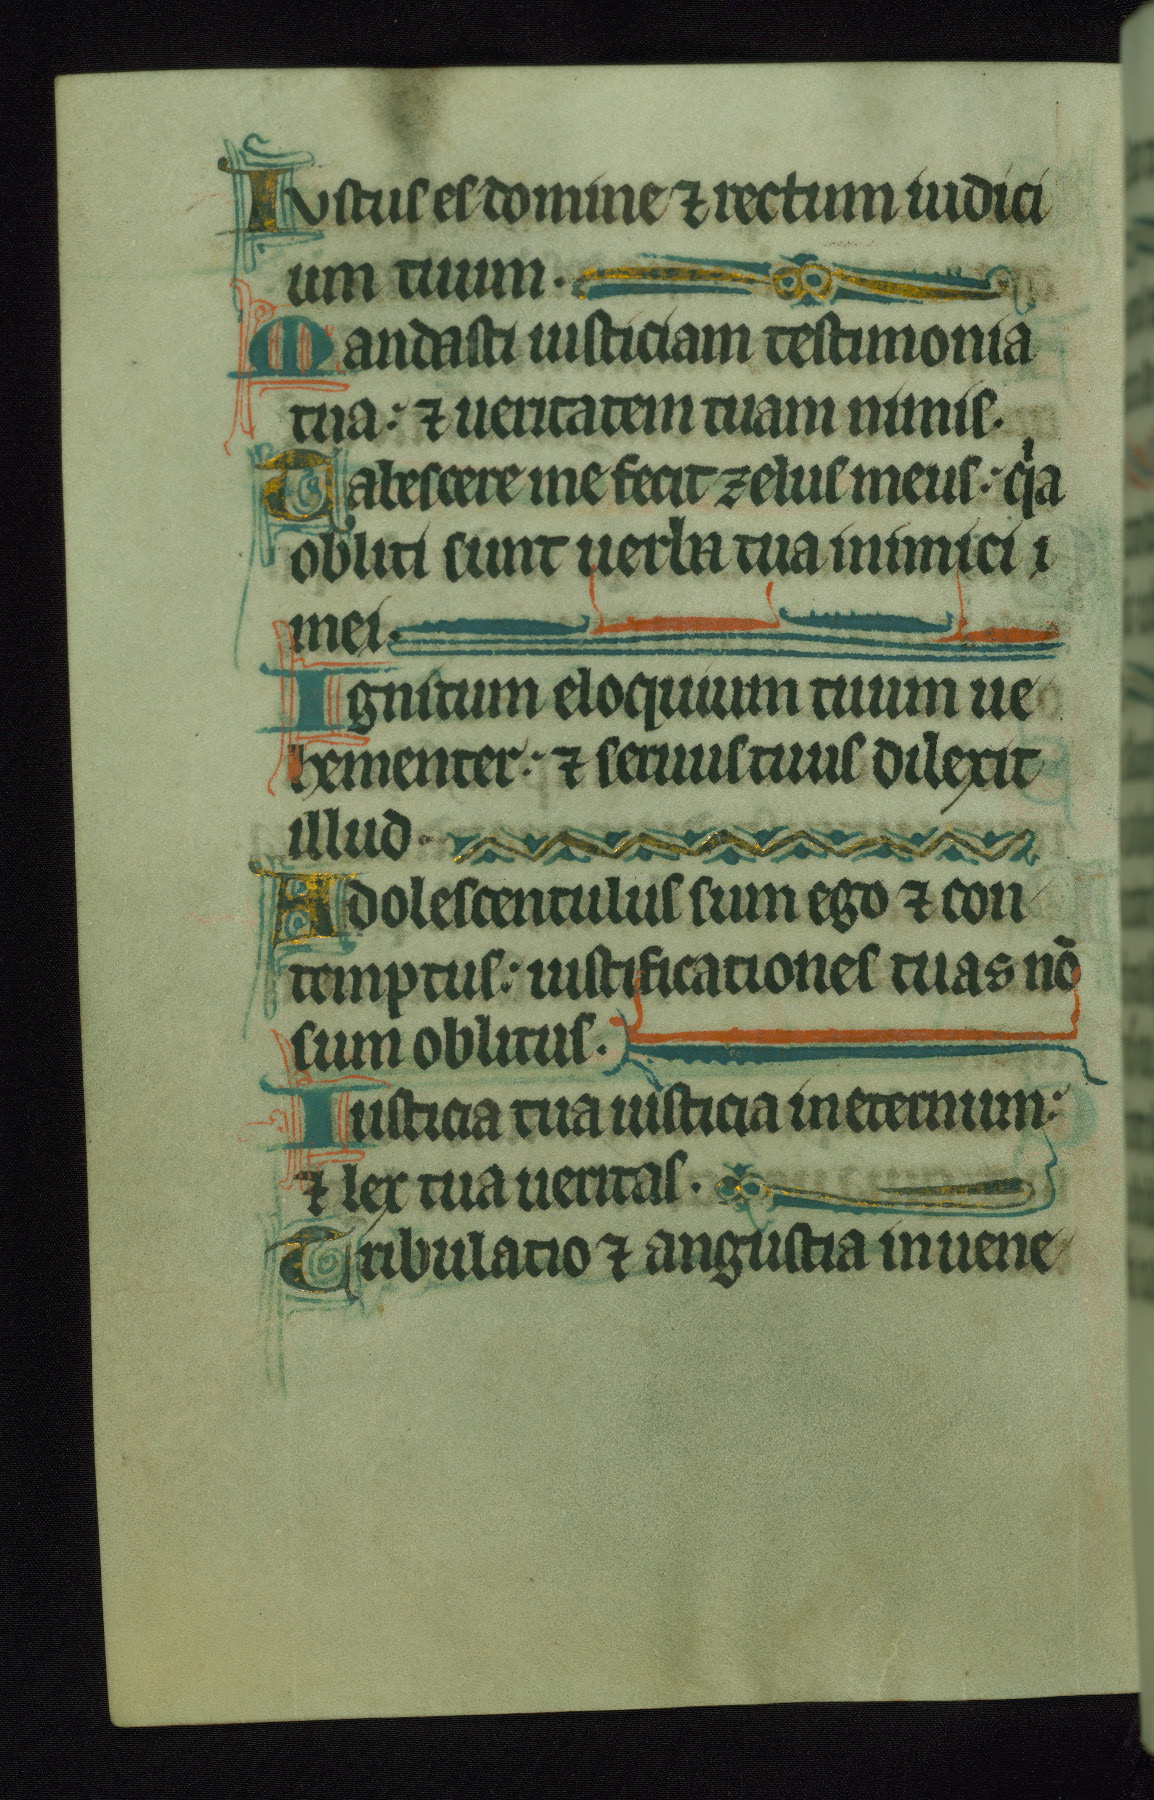 Iustus es domine ⁊ rectum iudici
um tuum.
Mandasti iusticiam testimonia
tua: ⁊ ueritatem tuam nimis.
Tabescere me fecit zelus meus: qͥa
obliti sunt uerba tua inimici i
mei.
Ignitum eloquium tuum ue
hementer: ⁊ seruus tuus dilexit
illud.
Adolescentulus sum ego ⁊ con
temptus: iustificationes tuas nō
sum oblitus.
Iusticia tua iusticia in eternum:
⁊ lex tua ueritas.
Tribulatio ⁊ angustia inuene